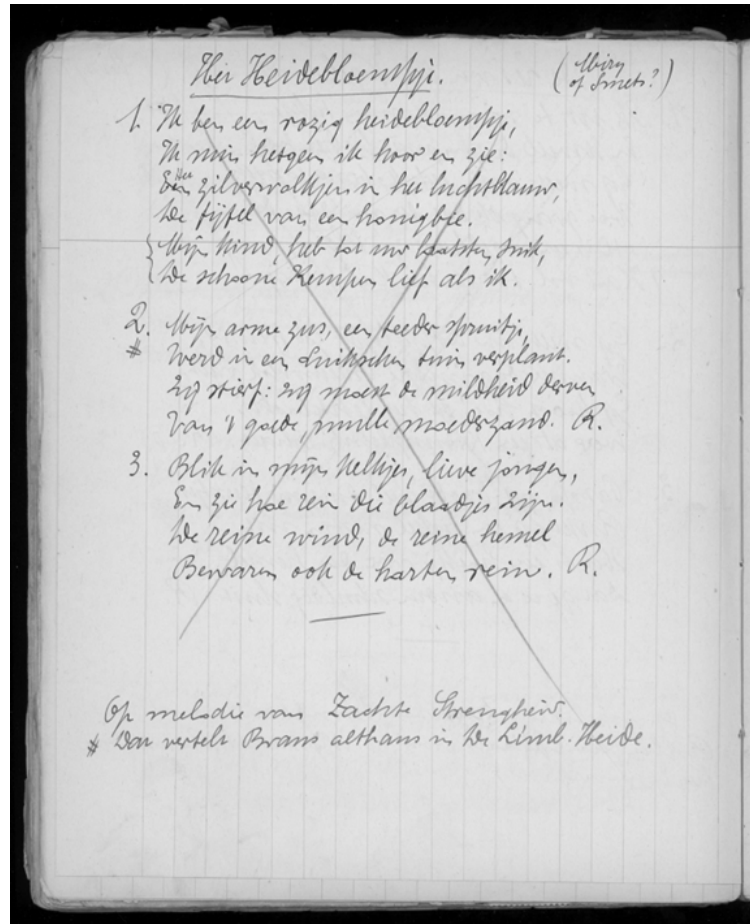 Het Heidebloempje.
(Miry
of Smets?)
1. Ik ben een rozig heidebloempje,
Ik min hetgeen ik hoor en zie:
Het zilverwolkjen in het luchtblauw,
De fijfel van een honigbie.
Mijn kind, heb tot uw laatsten snik,
De schoone Kempen lief als ik.
2. Mijn arme zus, een teeder spruitje,
# Werd in een Luikschen tuin verplant.
Zij stierf: zij moest de mildheid derven
Van 't goede, mulle moederzand. R.
3. Blik in mijn kelkje, lieve jongen,
En zie hoe rein die blaadjes zijn.
De reine wind, de reine hemel
Bewaren ook de harten rein. R.
Op melodie van Zachte Strengheid.
# Dat vertelt Brans althans in De Limb. Heide.